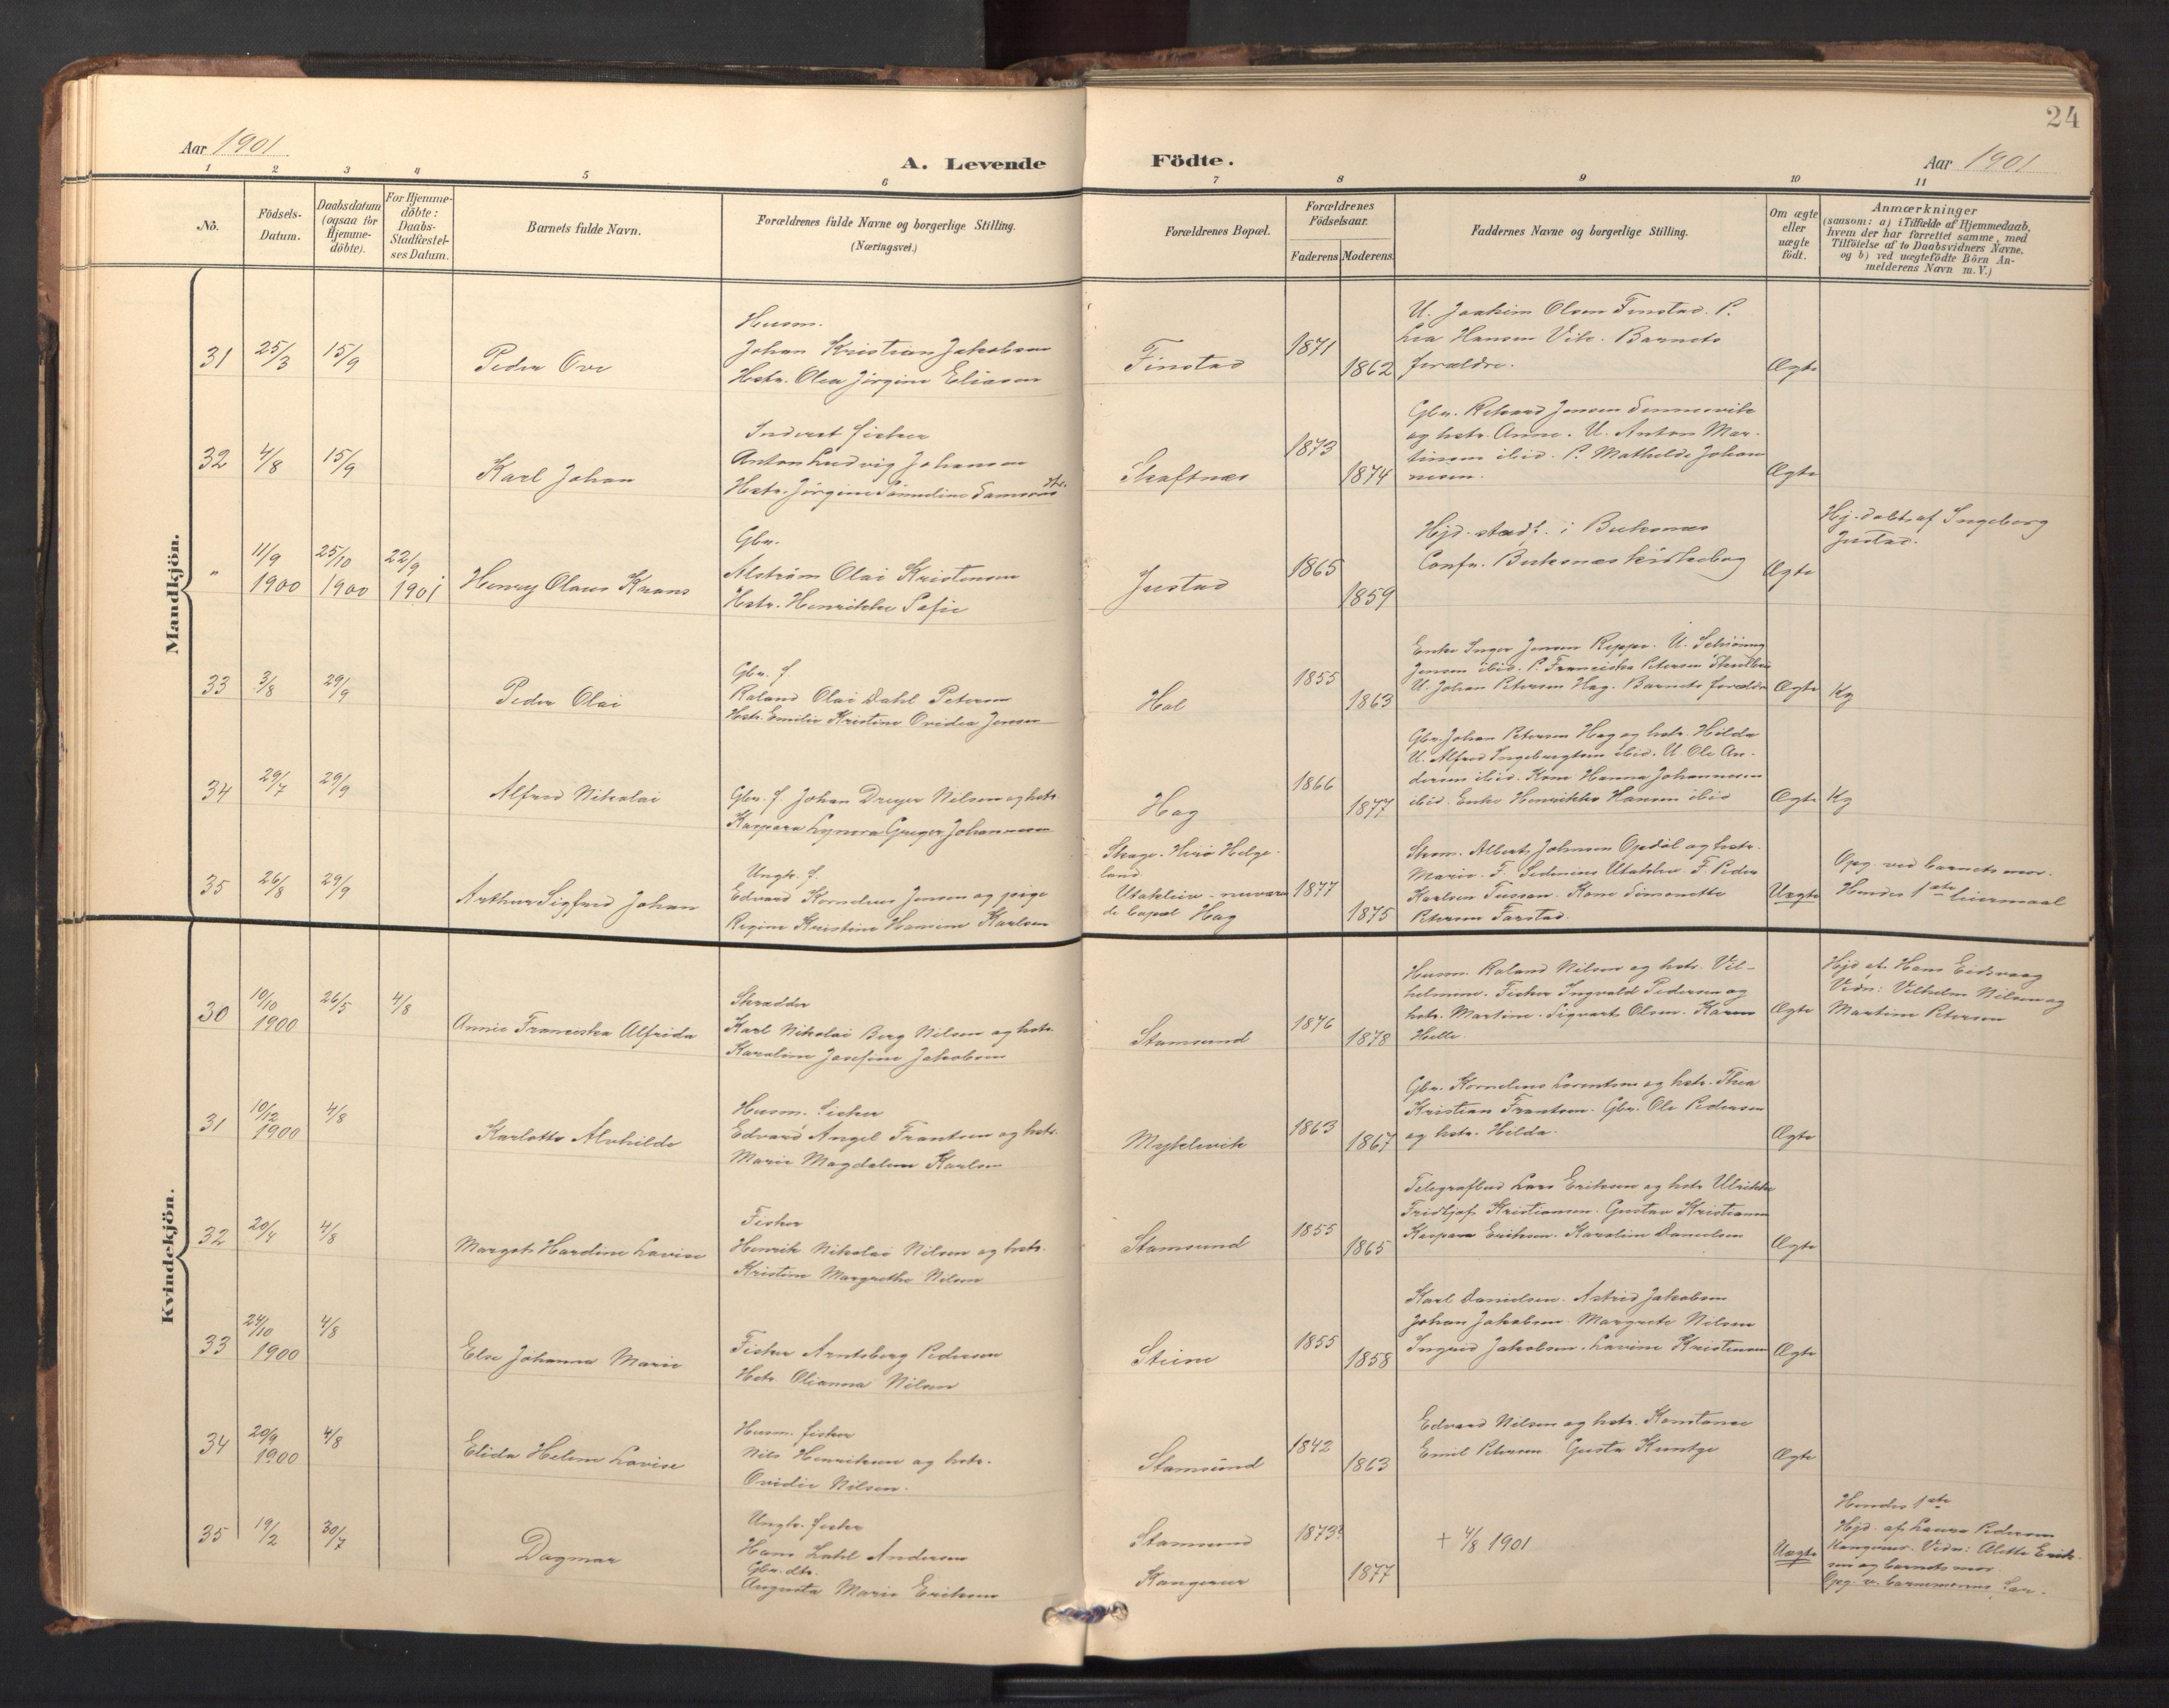 24
Aar 1901
A. Levende
Födte.
Aar 1901
1 2 3 4 5 6 7 8 9 10 11
No.
Födsels-
Datum.
Daabsdatum
(ogsaa for
Hjemme-
döbte).
For Hjemme-
döbte:
Daabs-
Stadfæstel-
ses Datum.
Barnets fulde Navn.
Forældrenes fulde Navne og borgerlige Stilling.
(Næringsvei.)
Forældrenes Bopæl.
Forældrenes
Födselsaar.
Faderens. Moderens.
Faddernes Navne og borgerlige Stilling.
Om ægte
eller
uægte
födt.
Anmærkninger
(saasom: a) i Tilfælde af Hjemmedaab,
hvem der har forrettet samme, med
Tilföielse af to Daabsvidners Navne,
og b) ved uægtefödte Börn An-
melderens Navn m. V.)
Mandkjön.
31 25/3 15/9
Peder Ove
Husm.
Johan Kristian Jakobsen
Hstr. Olea Jörgine Eliasen
Finstad
1871
1862
U. Joakim Olsen Finstad. P.
Lea Hansen Vik. Barnets
forældre.
Ægte
32 4/8 15/9
Karl Johan
Inderst fisker
Anton Ludvig Johansen
Hstr. Jörgine
Skaftnæs
1873
1874
Gbr. Rikard Jensen Sennesvik
og hstr. Anne. U. Anton Mar-
tinsen ibid. P. Mathilde Johan
nesen.
Ægte
" 11/9 1900 25/10 1900 22/9 1901
Henry Olaus Krans
Gbr.
Alström Olai Kristensen
Hstr. Henrikke Sofie
Justad
1865
1859
Hjd. stadf. i Buksnæs
Confr. Buksnæs kirkebog
Ægte
Hj. döbt af Ingeborg
Justad.
33 3/8 29/9
Peder Olai
Gbr. f
Roland Olai Dahl Petersen
Hstr. Emilie Kristine Ovidea Jensen
Hol
1855
1863
Enke Inger Jensen Reppe. U. Schöning
Jensen ibid. P. Franciska Petersen
U. Johan Petersen Hag. Barnets forældre
Ægte
Kg
34 29/7 29/9
Alfred Nikolai
Gbr. f. Johan Dreyer Nilsen og hstr.
Kaspara Lynora Greger Johannesen
Hag
1866
1877
Gbr. Johan Petersen Hag og hstr. Hilda
U. Alfred Ingebrigtsen ibid. U. Ole An-
dersen ibid. Kone Hanna Johannesen
ibid. Enke Henrikke Hansen ibid
Ægte
Kg
35 26/8 29/9
Arthur Sigfred Johan
Ungk. f.
Edvard Kornelius Jensen og pige
Regine Kristine Hansine Karlsen
Skage. Herö Helge-
land
Utakleiv - nuværen
de bopæl Hag
1877
1875
Strm. Albert Johnsen Opdöl og hstr.
Marie. F. Sedenius Utakleiv F. Peder
Karlsen Tussan. Kone Simonette
Petersen Farstad.
Uægte
Opg. ved barnets mor.
Hendes 1ste leiermaal
Kvindekjön.
30 10/10 1900 26/5 4/8
Annie Franciska Alfrida
Skrædder
Karl Nikolai Berg Nilsen og hstr.
Karoline Josefine Jakobsen
Stamsund
1876
1878
Husm. Roland Nilsen og hstr. Vil-
helmine. Fisker Ingvald Pedersen og
hstr. Martine. Sigvart Olsen. Karen
Helle.
Ægte
Hjd af Hans Eidsvaag
Vidn: Vilhelm Nilsen og
Martine Petersen
31 10/12 1900 4/8
Karlotte Alvhilde
Husm. fisker
Edvard Angel Frantsen og hstr.
Marie Magdalena Karlsen
Myklevik
1863
1867
Gbr. Kornelius Lorentsen og hstr. Thea
Kristian Frantsen. Gbr. Ole Pedersen
og hstr. Hilda.
Ægte
32 20/4 4/8
Margot Hardine Lovise
Fisker
Henrik Nikolai Nilsen og hstr.
Kristine Margrethe Nilsen
Stamsund
1855
1865
Telegrafbud Lars Eriksen og hstr Ulrikke
Fridtjof Kristiansen. Gustav Kristiansen
Kaspara Eriksen. Karoline Danielsen
Ægte
33 24/10 1900 4/8
Else Johanna Marie
Fisker Arntsberg Pedersen
Hstr. Olianna Nilsen
Steine
1855
1858
Karl Danielsen. Astrid Jakobsen
Johan Jakobsen. Margrete Nilsen
Ingrid Jakobsen. Lavine Kristensen
Ægte
34 20/9 1900 4/8
Elida Helene Lovise
Husm. fisker
Nils Henriksen og hstr.
Ovidie Nilsen.
Stamsund
1842
1863
Edvard Nilsen og hstr. Konstanse
Emil Petersen Gusta
Ægte
35 19/2 30/7
Dagmar
Ungk. fisker
Hans Dahl Andersen
Gbr. dtr.
Augusta Marie Eriksen
Stamsund
Kangerur
1873?
1877
+ 4/8 1901
Uægte
Hendes 1ste
Hjd. af Laura Pedersen
Kangerur. Vidn: Alette Erik-
sen og barnets mor
Opg. v. barnemorens far.